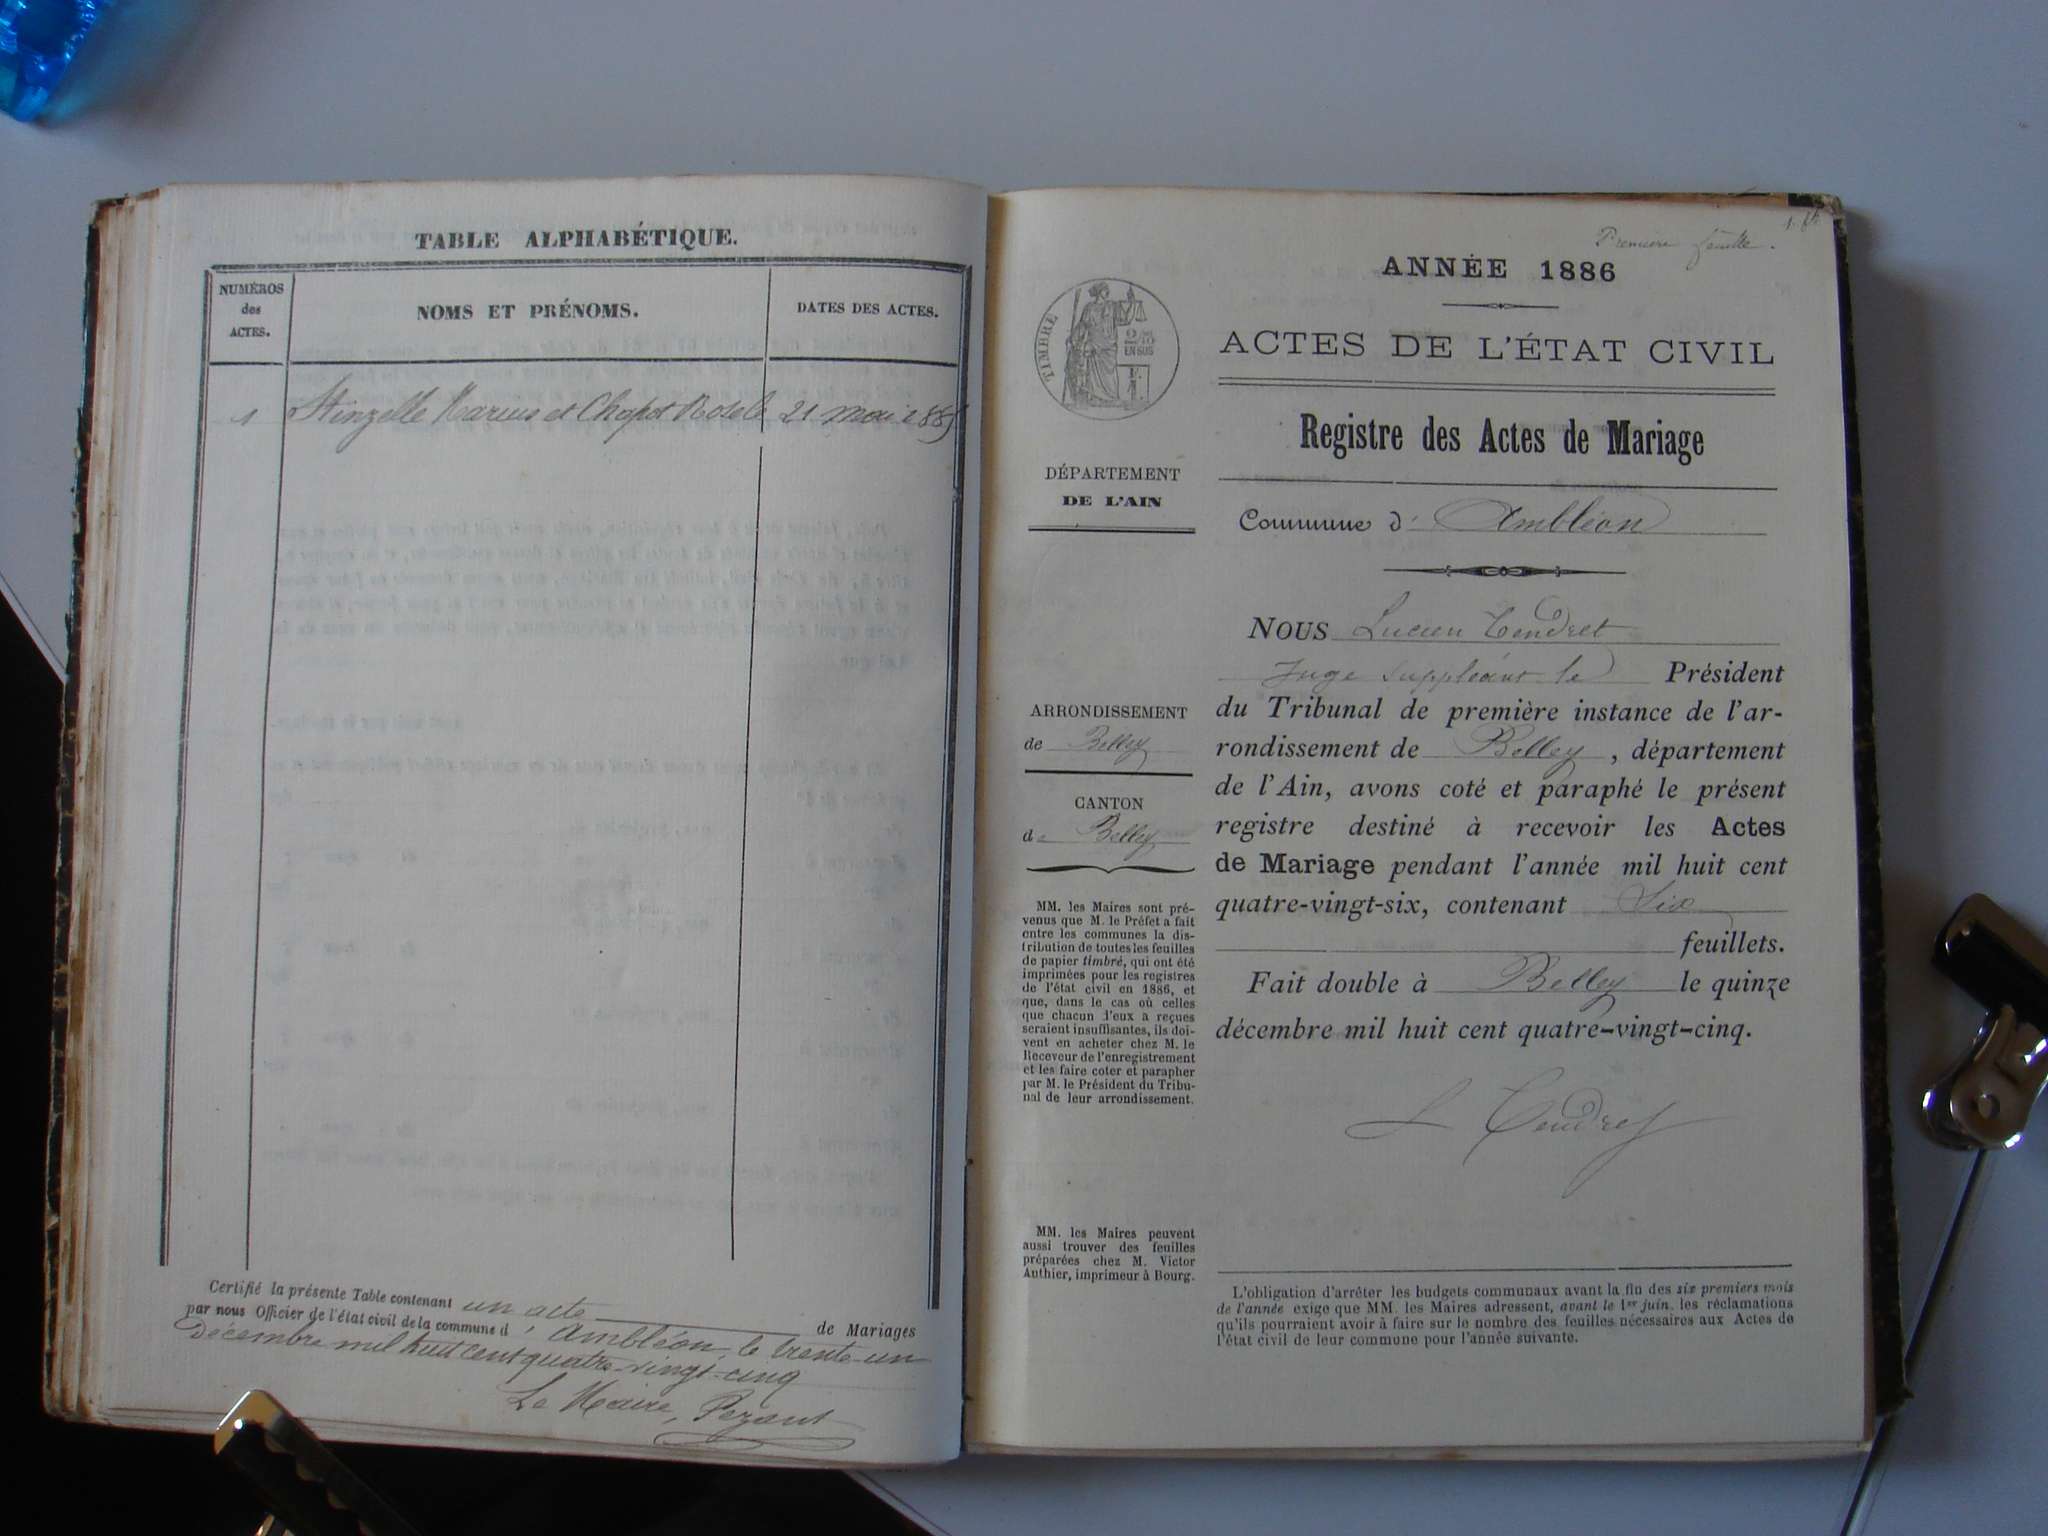 TABLE ALPHABÉTIQUE.
NUMÉROS
des
ACTES.
NOMS ET PRÉNOMS.
DATES DES ACTES.
1 Stinzelle Marius et Chapot Rosalie 21 mai 1885
Certifié la présente Table contenant un acte de Mariages
par nous Officier de l'état civil de la commune d'Ambléon, le trente-un
décembre mil huit cent quatre-vingt-cinq
Le Maire, Pezant
Première feuille.
ANNÉE 1886
ACTES DE L'ÉTAT CIVIL
Registre des Actes de Mariage
Commune d'Ambléon
TIMBRE
2/10
EN SUS
DÉPARTEMENT
DE L'AIN
ARRONDISSEMENT
de Belley
CANTON
de Belley
MM. les Maires sont pré-
venus que M. le Préfet a fait
entre les communes la dis-
tribution de toutes les feuilles
de papier timbré, qui ont été
imprimées pour les registres
de l'état civil en 1886, et
que, dans le cas où celles
que chacun d'eux a reçues
seraient insuffisantes, ils doi-
vent en acheter chez M. le
Receveur de l'enregistrement
et les faire coter et parapher
par M. le Président du Tribu-
nal de leur arrondissement.
MM. les Maires peuvent
aussi trouver des feuilles
préparées chez M. Victor
Authier, imprimeur à Bourg.
NOUS Lucien Tendret
Juge suppléant le Président
du Tribunal de première instance de l'ar-
rondissement de Belley, département
de l'Ain, avons coté et paraphé le présent
registre destiné à recevoir les Actes
de Mariage pendant l'année mil huit cent
quatre-vingt-six, contenant Six
feuillets.
Fait double à Belley le quinze
décembre mil huit cent quatre-vingt-cinq.
L Tendret
L'obligation d'arrêter les budgets communaux avant la fin des six premiers mois
de l'année exige que MM. les Maires adressent, avant le 1er juin. les réclamations
qu'ils pourraient avoir à faire sur le nombre des feuilles nécessaires aux Actes de
l'état civil de leur commune pour l'année suivante.